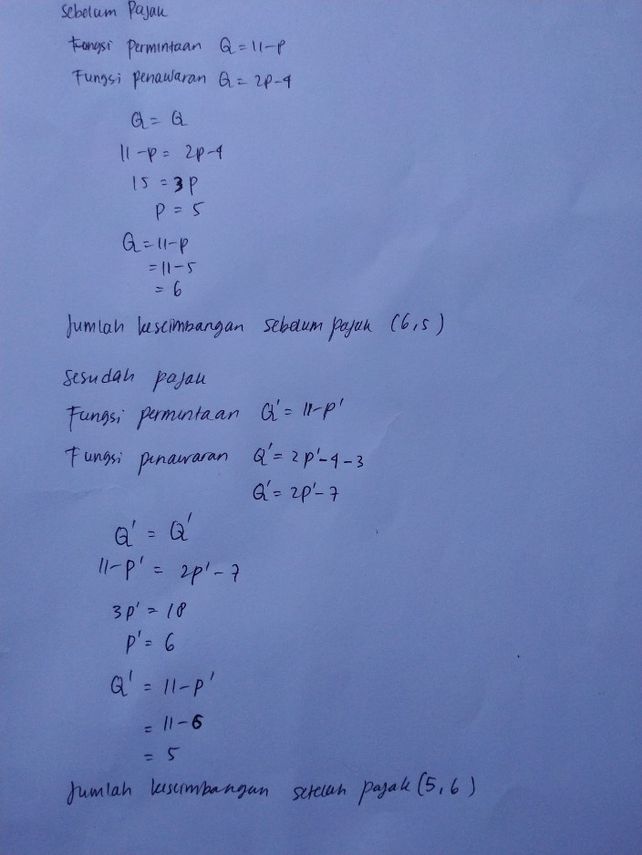 Sebelum Pajak
Fungsi Permintaan Q = 11-P
Fungsi Penawaran Q = 2P-4
Q = Q
11-P = 2P-4
15 = 3P
P = 5
Q = 11-P
= 11-5
= 6
Jumlah keseimbangan sebelum pajak (6,5)
Sesudah pajak
Fungsi permintaan Q' = 11-P'
Fungsi penawaran Q' = 2P'-4-3
Q' = 2P'-7
Q' = Q'
11-P' = 2P'-7
3P' = 18
P' = 6
Q' = 11-P'
= 11-6
= 5
Jumlah keseimbangan setelah pajak (5,6)